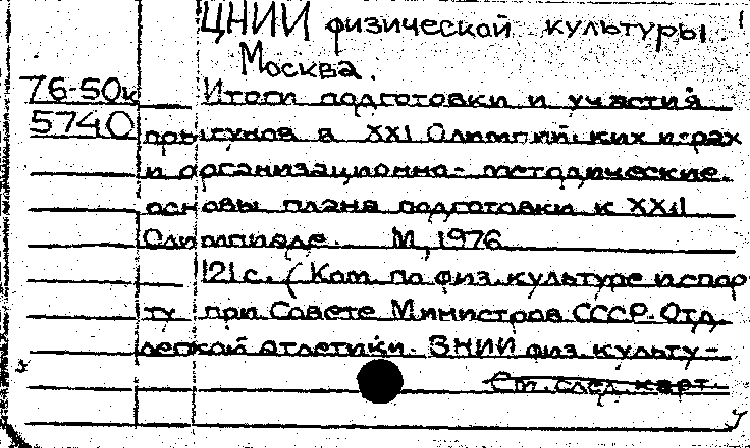 ЦНИИ физической культуры.
Москва.
76-50к Итоги подготовки и участия
5740 прыгунов в XXI Олимпийских играх
и организационно-методические
основы плана подготовки к XXII
Олимпиаде. М., 1976
121 с. (Ком. по физ. культуре и спор
ту при Совете Министров СССР. Отд.
легкой атлетики. ВНИИ физ. культу-
См. след. карт.